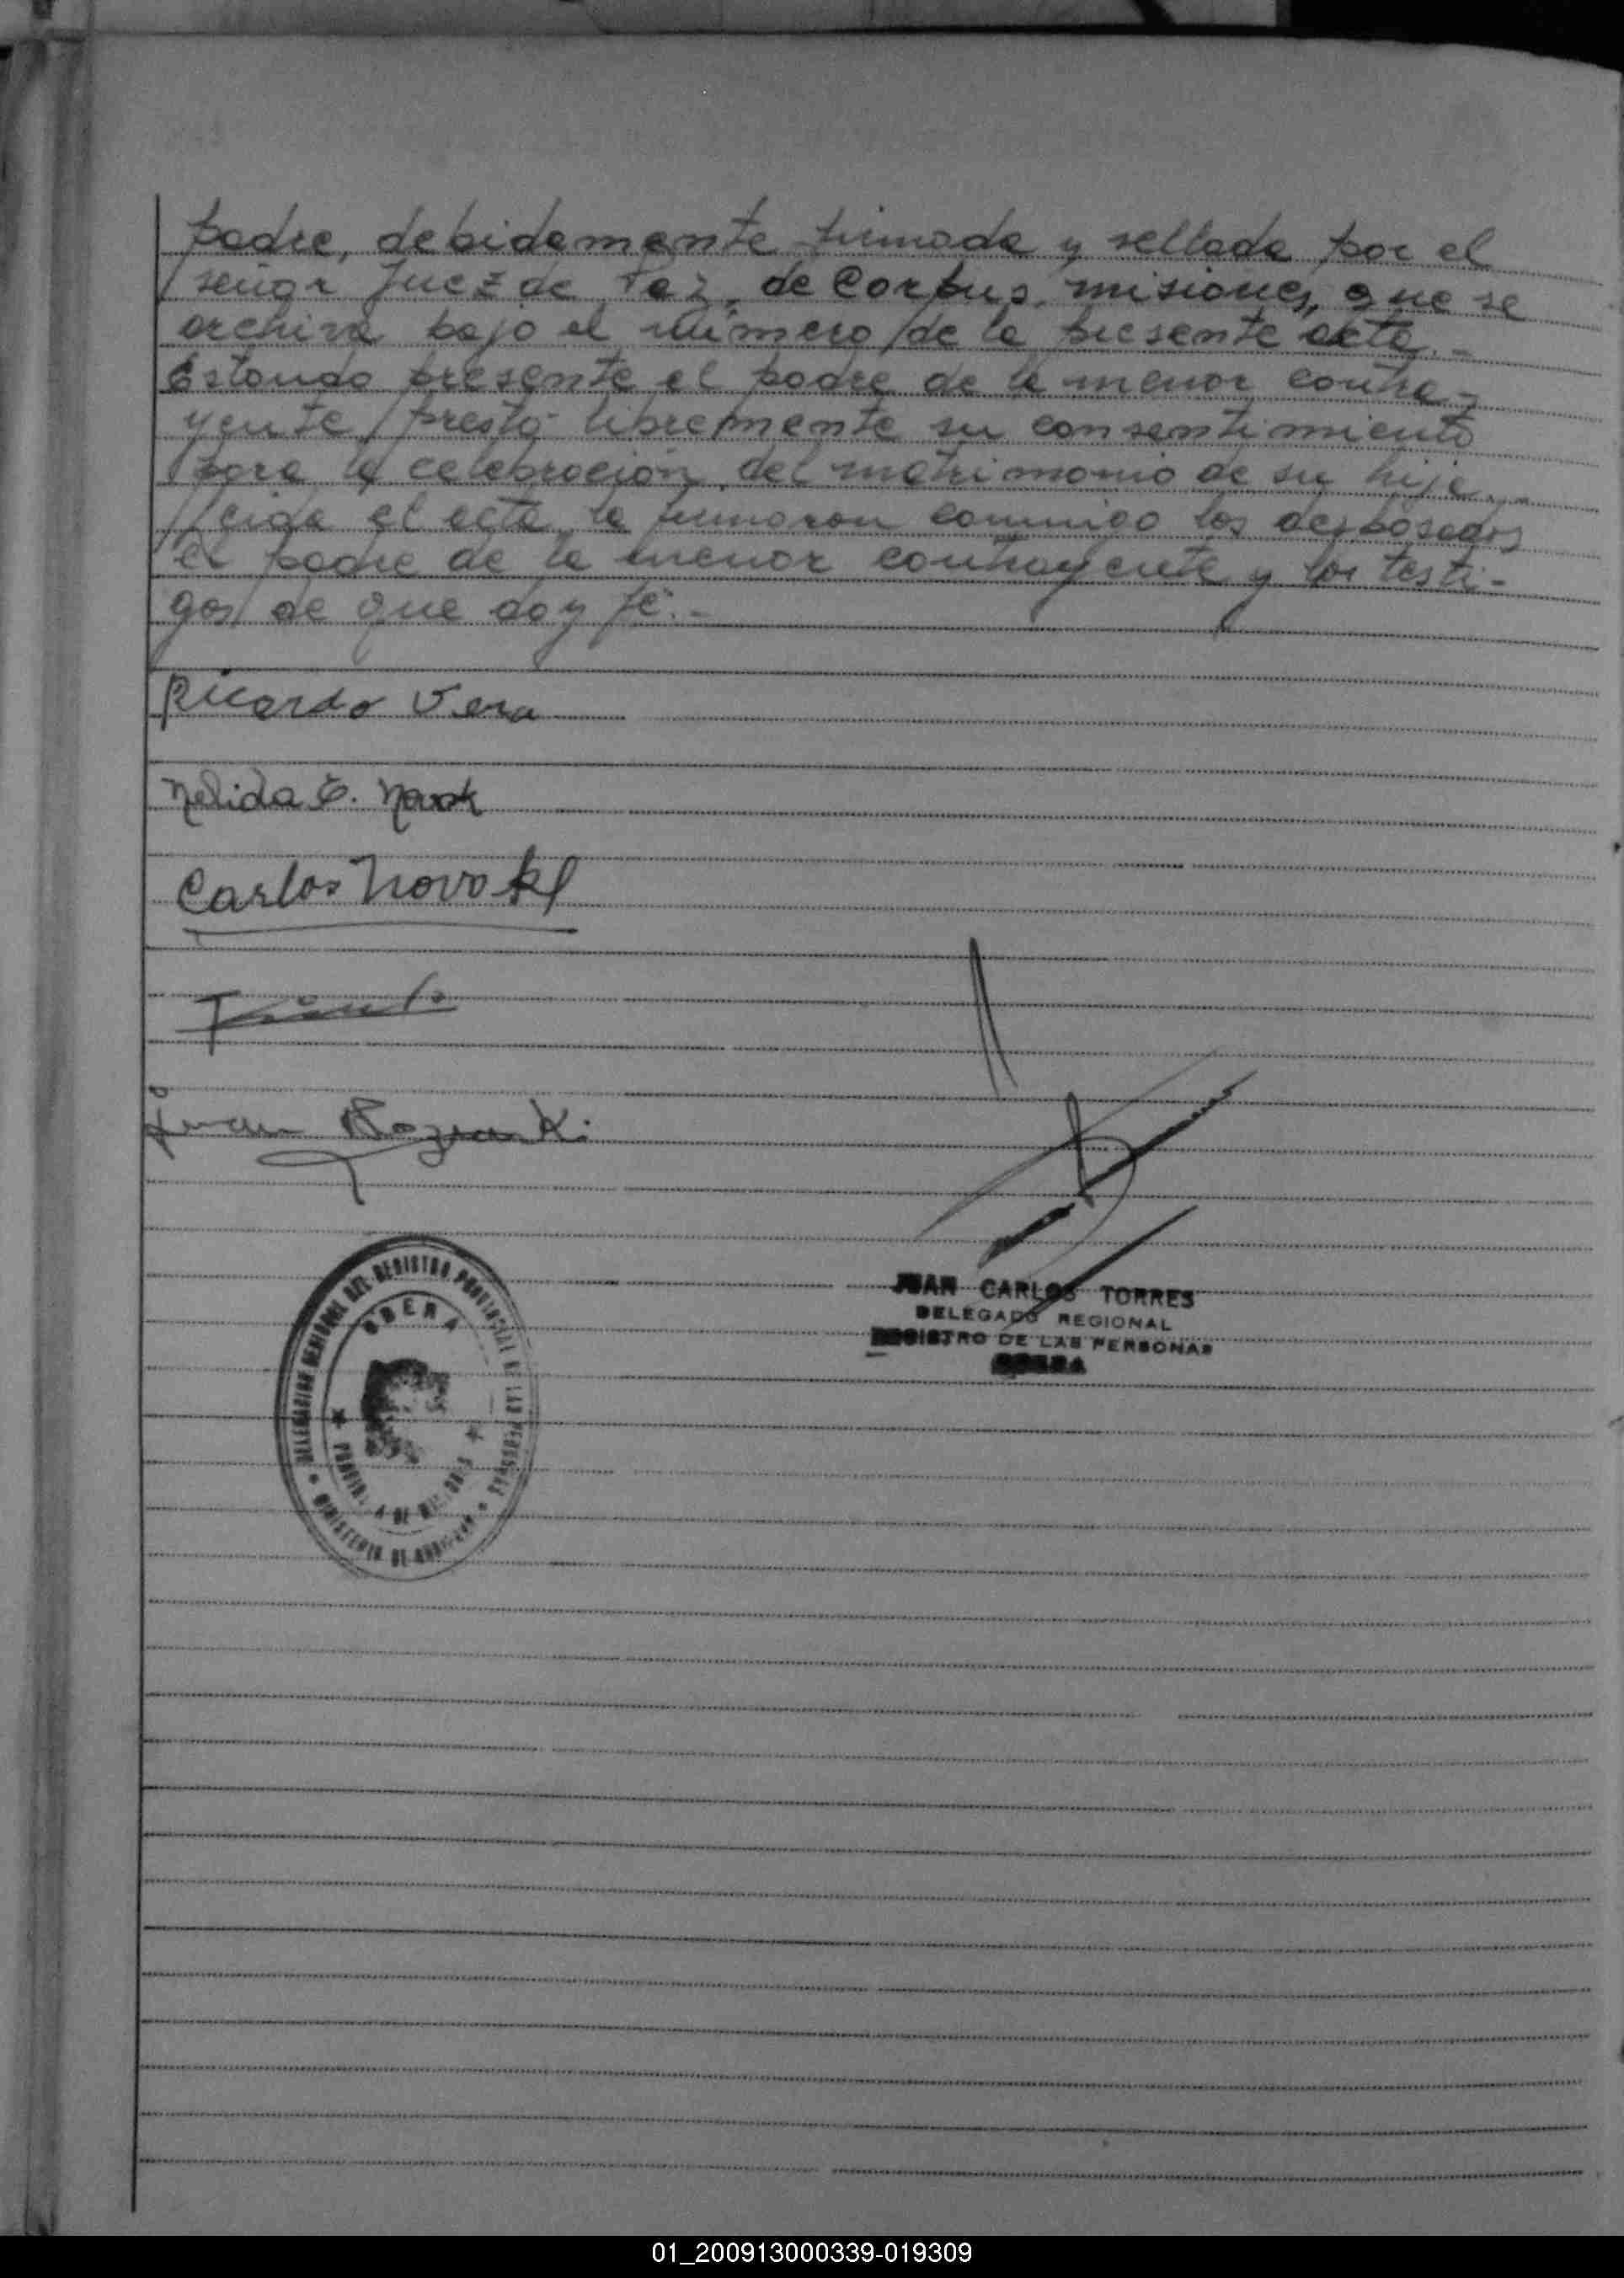 padre, debidamente firmada y sellada por el
señor Juez de Paz, de Corpus, misiones, que se
archiva bajo el número de la presente acta.-
Estando presente el padre de la menor contra-
yente, prestó libremente su consentimiento
para la celebración del matrimonio de su hija.-
Leida el acta, la firmaron conmigo los desposados
el padre de la menor contrayente y los testi-
gos de que doy fé.-
Ricardo Vera
Nelida E. Novak
Carlos Novak
Juan
JUAN CARLOS TORRES
DELEGADO REGIONAL
REGISTRO DE LAS PERSONAS
OBERA
DELEGACION REGIONAL DEL REGISTRO PROVINCIAL DE LAS PERSONAS
OBERA
PROVINCIA DE MISIONES
MINISTERIO DE
01_200913000339-019309